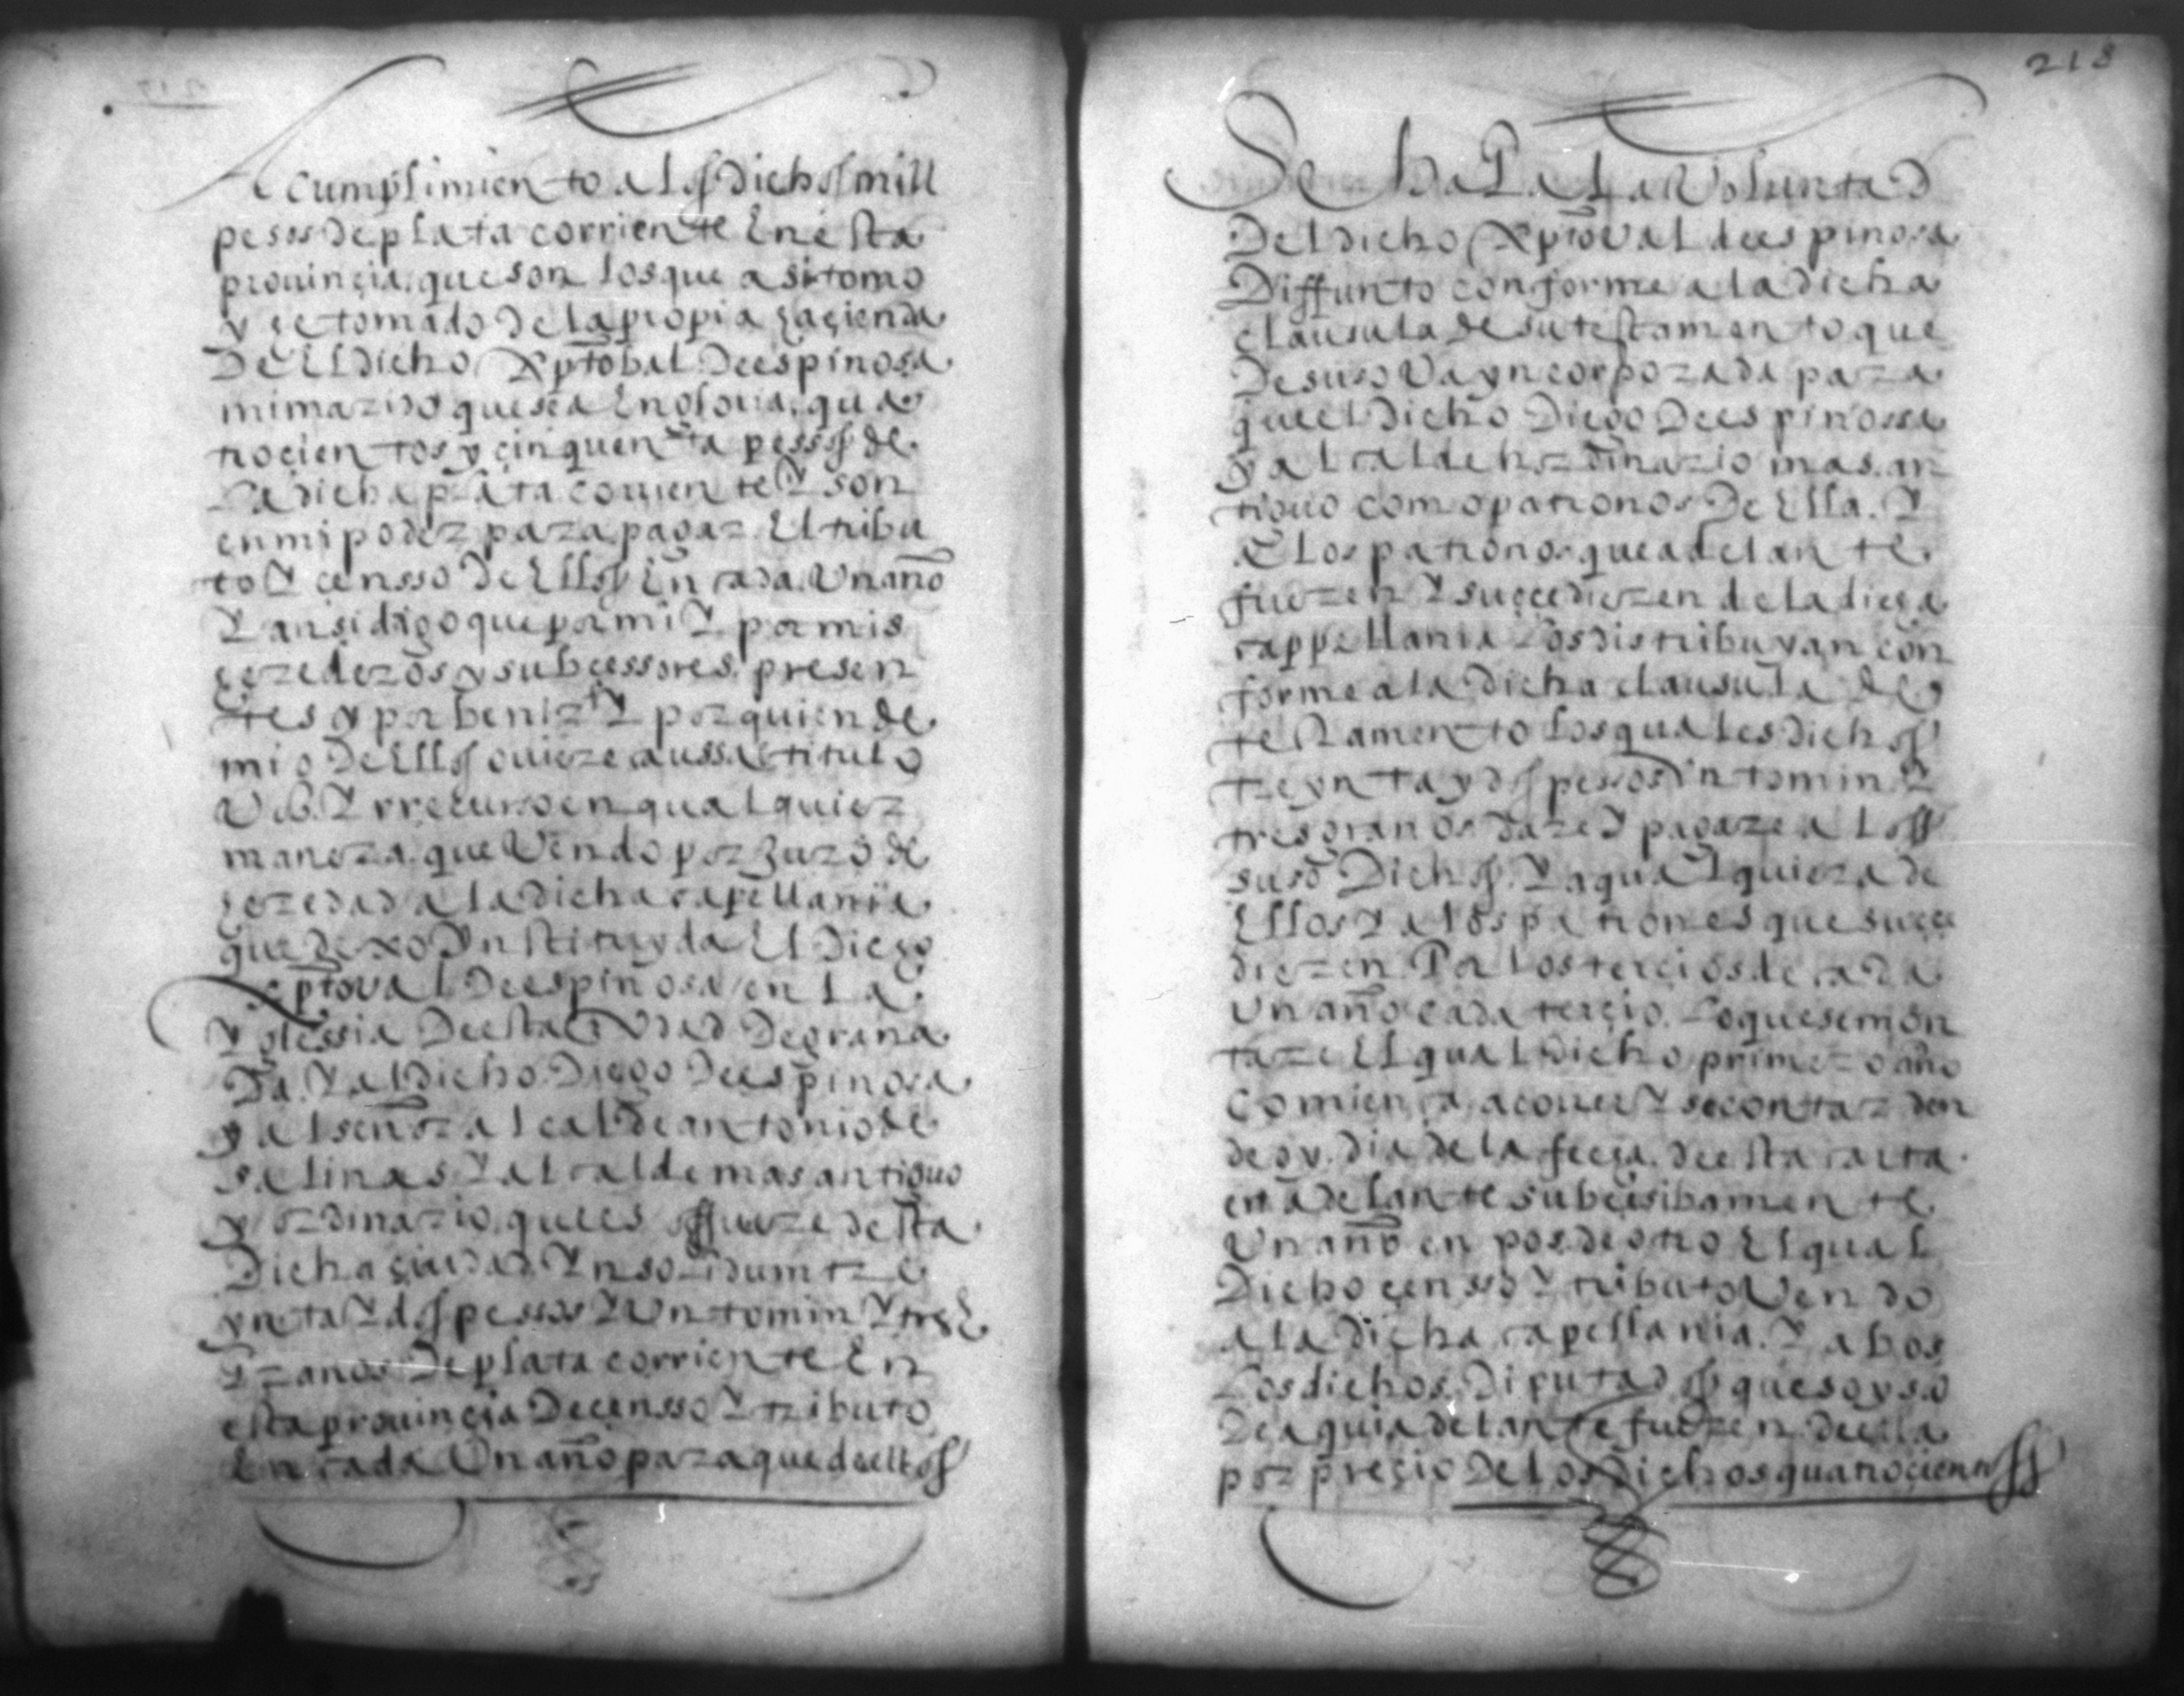 cumplimiento a los dichos mill
pesos de plata corriente En esta
prouinçia. que son los que asi tomo
y e tomado de la propia haçienda
De El dicho Xptobal De espinosa
mi marido que sea En gloria. qua
troçientos y çinquenta pessos de
La dicha plata corriente Y son
en mi poder para pagar El tribu
to Y censso De Ellos En cada Un año
Y ansi digo que por mi Y por mis
erederos y subcessores. presen
tes y por benir Y por quien de
mi o De Ellos ouiere caussa titulo
Vos. Y rrecurso en qualquier
manera. que Vendo por Juro de
eredad a la dicha capellania
que dexo Ynstituyda El Dicho
Xptoval De espinosa en La
Yglessia De esta ciudad De grana
Da. Y al Dicho. Diego De espinosa
y al señor alcalde antonio de
salinas Y alcalde mas antiguo
y ordinario. que es o ffuere desta
Dicha çiudad Ynsolidum tre
ynta Y dos pessos Y Un tomin Y tres
Granos De plata corriente En
esta prouinçia De çensso Y tributo
En cada Un año para que de ellos
213
Se haga La Voluntad
Del dicho Xptoval de espinosa
Diffunto conforme a la dicha
clausula de su testamento que
De suso Va yncorporada para
que el dicho Diego De espinossa
y alcalde hordinario mas an
tiguo como patronos De Ella. Y
a Los patronos que adelante
fueren Y suççedieren de la dicha
cappellania Los distribuyan con
forme a la dicha clausula de
testamento Los quales dichos
treynta y dos pessos Un tomin Y
tres granos dare Y pagare a Los
suso Dichos. Y a qualquiera de
Ellos Y a los patrones que suçe
dieren Por Los terçios de cada
Un año cada terçio. Lo que se mon
tare El qual dicho primero año
Comiença a correr Y se contar den
de oy. dia de la fecha. de esta carta.
en adelante subçesibamente
Un año en pos de otro El qual
Dicho çensso Y tributo Vendo
a la dicha capellania. Y a bos
Los dichos. Diputados que soys o
De aqui adelante fueren de ella
por preçio De Los Dichos quatroçientos